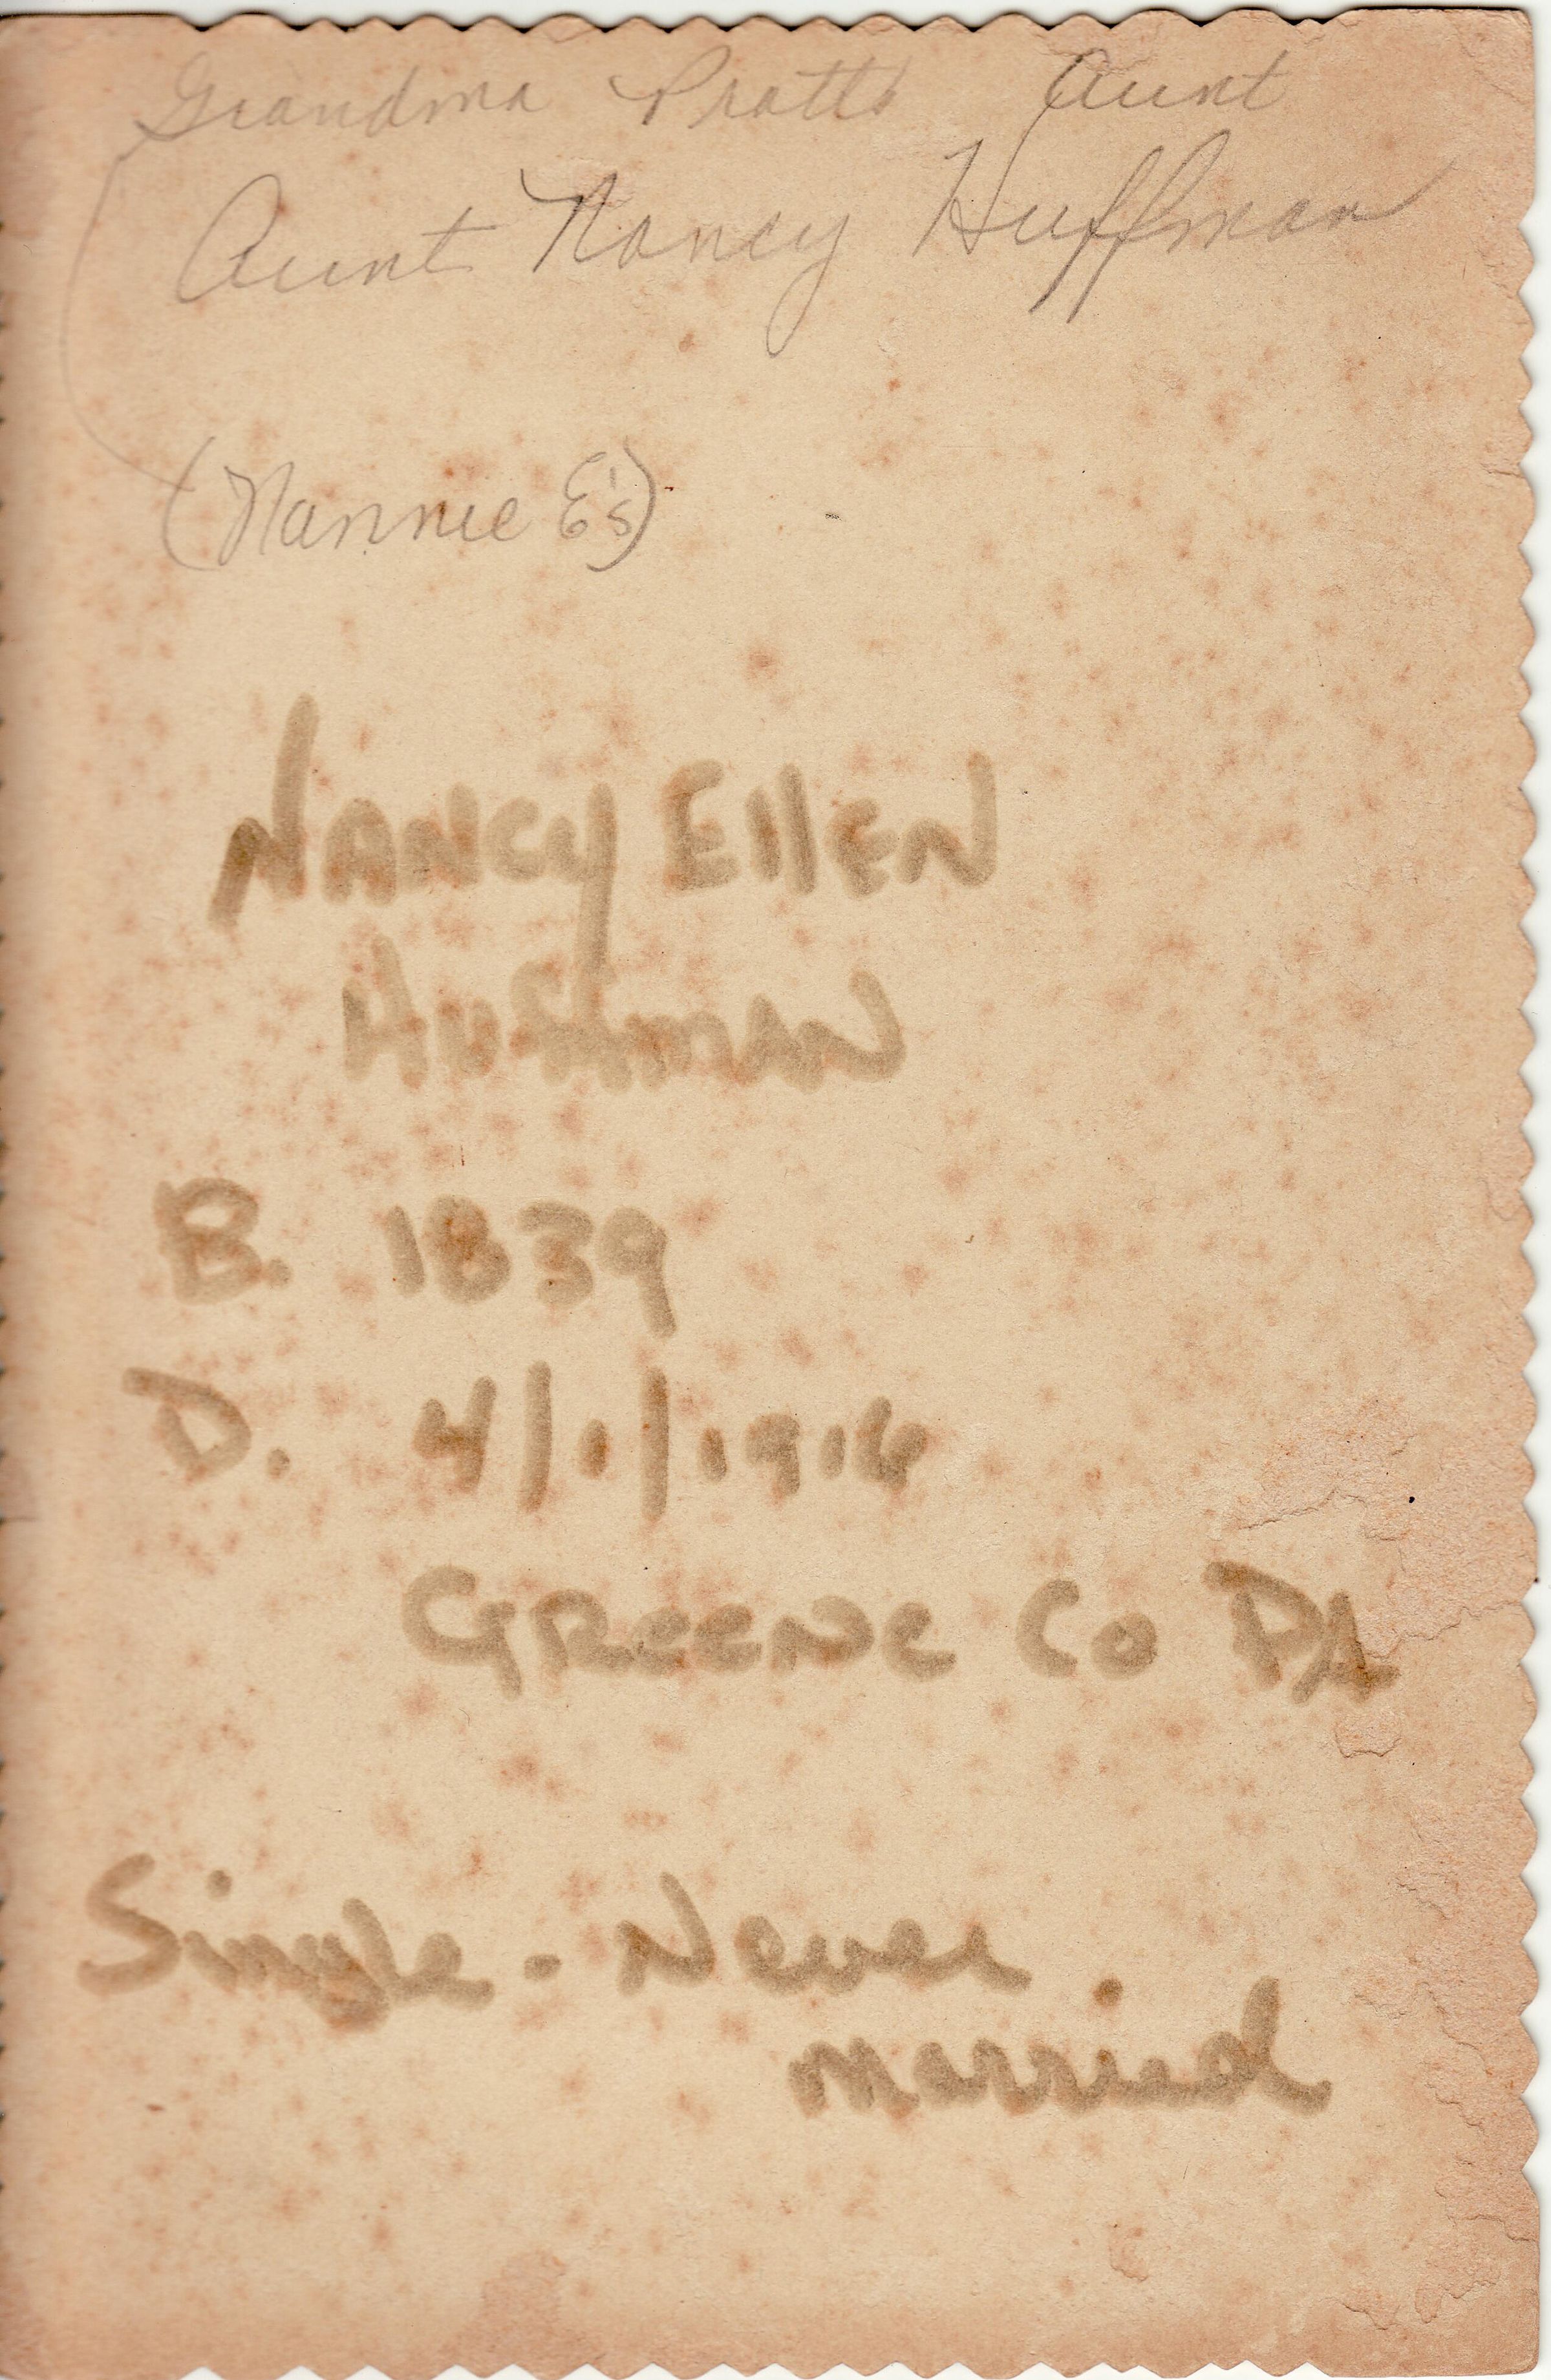 Grandma Pratts Aunt
Aunt Nancy Huffman
(Nannie E's)
NANCY EllEN
HUFFMAN
B. 1839
D. 4/1/1916
GREENE CO PA
Single - Never
married